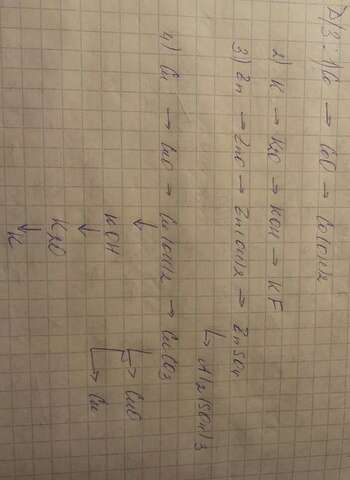 Д/З: 1) Co → CoO → Co(OH)2
2) K → K2O → KOH → KF
3) Zn → ZnO → Zn(OH)2 → ZnSO4
↳ Al2(SO4)3
4) Cu → CuO → Cu(OH)2 → CuCO3
↓ KOH
↓ K2O
↓ K
↳ CuO
↳ Cu